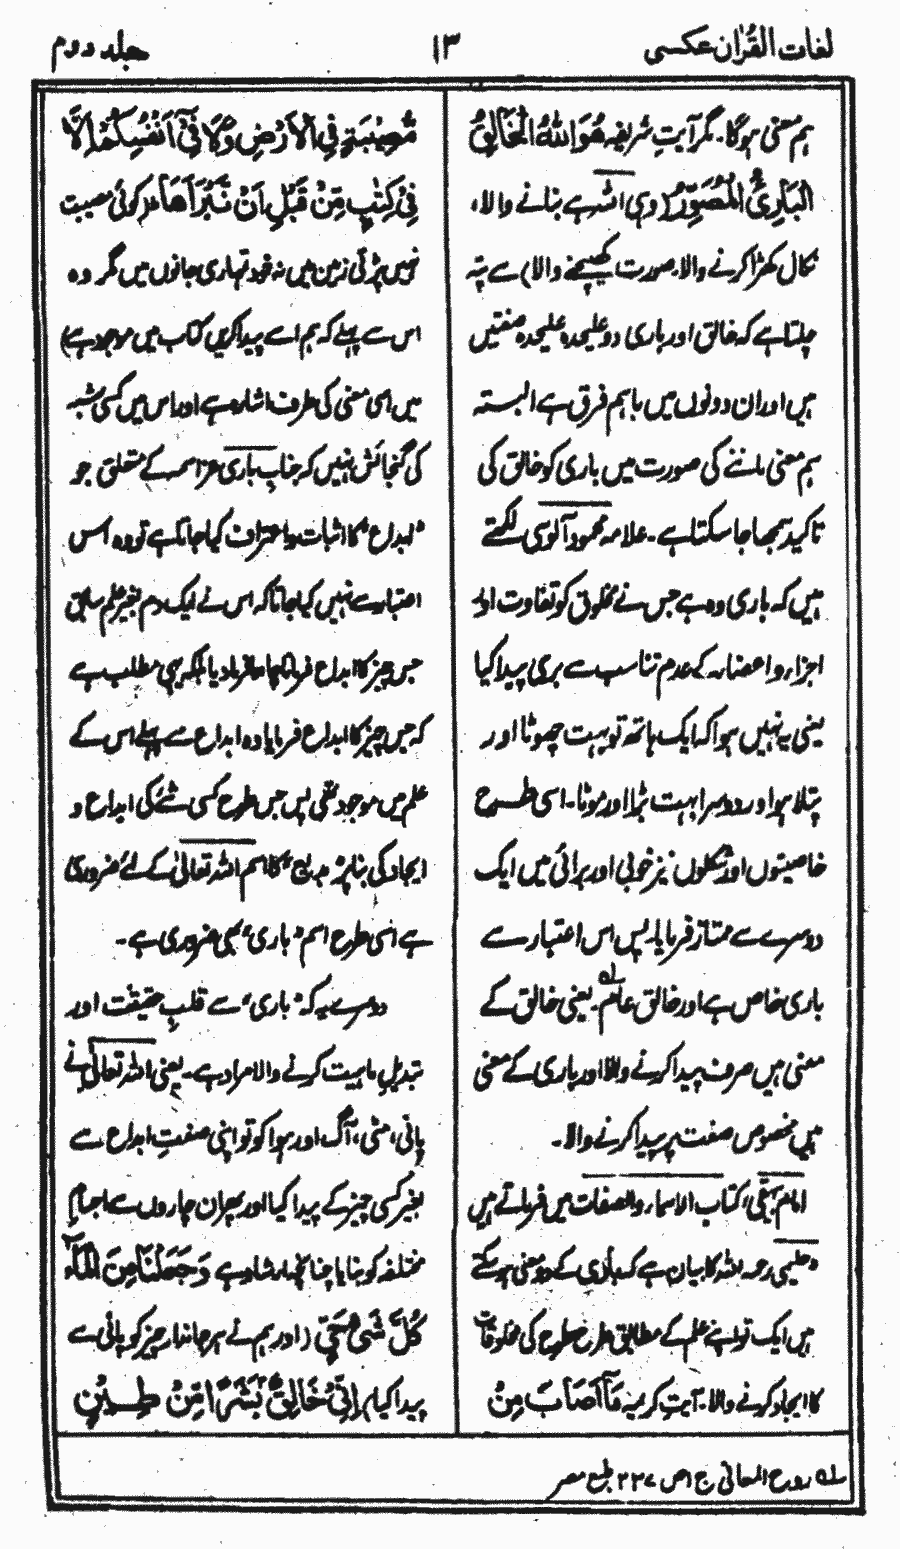 لغات القرآن عکسی
۱۳
جلد دوم
ہم معنی ہوگا۔ مگر آیتِ شریفہ هُوَ اللّٰهُ الْخَالِقُ
الْبَارِئُ الْمُصَوِّرُ (وہی اللہ ہے بنانے والا،
نکال کھڑا کرنے والا۔ صورت کھینچنے والا) سے پتہ
چلتا ہے کہ خالق اور باری دو علیحدہ علیحدہ صفتیں
ہیں اور ان دونوں میں باہم فرق ہے البتہ
ہم معنی ماننے کی صورت میں باری کو خالق کی
تاکید سمجھا جا سکتا ہے۔ علامہ محمود آلوسی لکھتے
ہیں کہ باری وہ ہے جس نے مخلوق کو تفاوت اور
اجزاء و اعضاء کے عدم تناسب سے بری پیدا کیا
یعنی یہ نہیں ہوا کہ ایک ہاتھ تو بہت چھوٹا اور
پتلا ہو اور دوسرا بہت بڑا اور موٹا۔ اسی طرح
خاصیتوں اور شکلوں نیز خوبی اور برائی میں ایک
دوسرے سے ممتاز فرمایا۔ پس اس اعتبار سے
باری خاص ہے اور خالق عام۔ یعنی خالق کے
معنی ہیں صرف پیدا کرنے والا اور باری کے معنی
ہیں مخصوص صفت پر پیدا کرنے والا۔
امام بیہقی، کتاب الاسماء والصفات میں فرماتے ہیں
حلیمی رحمہ اللہ کا بیان ہے کہ باری کے دو معنی ہو سکتے
ہیں ایک تو اپنے علم کے مطابق طرح طرح کی مخلوقات
کا ایجاد کرنے والا۔ آیتِ کریمہ مَآ اَصَابَ مِنْ
مُّصِیْبَةٍ فِی الْاَرْضِ وَلَا فِیْٓ اَنْفُسِكُمْ اِلَّا
فِیْ كِتٰبٍ مِّنْ قَبْلِ اَنْ نَّبْرَاَهَا (کوئی مصیبت
نہیں پڑتی زمین میں نہ خود تمہاری جانوں میں مگر وہ
اس سے پہلے کہ ہم اسے پیدا کریں کتاب میں موجود ہے)
میں اسی معنی کی طرف اشارہ ہے اور اس میں کسی شبہ
کی گنجائش نہیں کہ جناب باری عز اسمہ کے متعلق جو
"ابداع" کا اثبات و اعتراف کیا جاتا ہے تو وہ اس
اعتبار سے نہیں کیا جاتا کہ اس نے ایک دم بغیر علم سابق
جس چیز کا ابداع فرمانا چاہا فرما دیا بلکہ یہی مطلب ہے
کہ جس چیز کا ابداع فرمایا وہ ابداع سے پہلے اس کے
علم میں موجود تھی پس جس طرح کسی شئے کی ابداع و
ایجاد کی بنا پر "بدیع" کا اسم اللہ تعالیٰ کے لئے ضروری
ہے اسی طرح اسم "باری" بھی ضروری ہے۔
دوسرے یہ کہ "باری" سے قلبِ حقیقت اور
تبدیلِ ماہیت کرنے والا مراد ہے۔ یعنی اللہ تعالیٰ نے
پانی، مٹی، آگ اور ہوا کو تو اپنی صفتِ ابداع سے
بغیر کسی چیز کے پیدا کیا اور پھر ان چاروں سے اجسام
مختلفہ کو بنایا چنانچہ ارشاد ہے وَجَعَلْنَا مِنَ الْمَآءِ
كُلَّ شَیْءٍ حَیٍّ (اور ہم نے ہر جاندار چیز کو پانی سے
پیدا کیا) اِنِّیْ خَالِقٌۢ بَشَرًا مِّنْ طِیْنٍ
لے روح المعانی ج ا ص ۲۳۷ طبع مصر